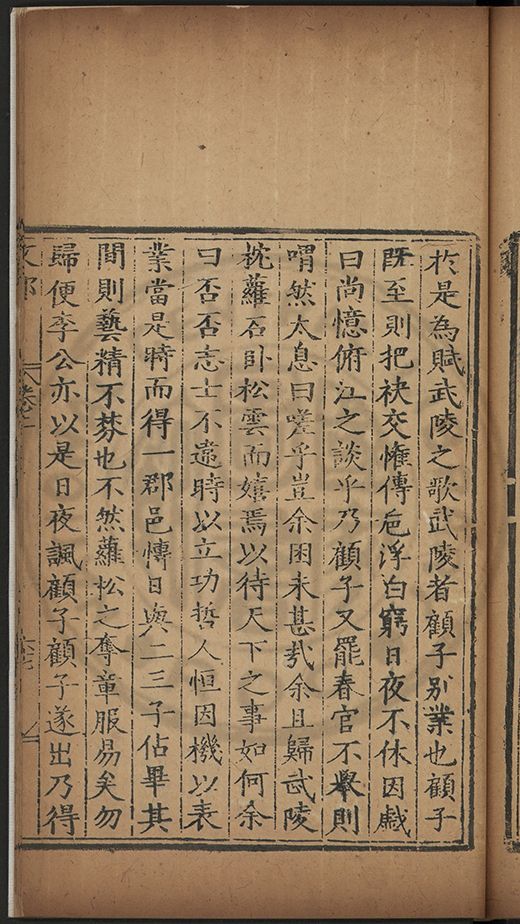 於是為賦武陵之歌武陵者顧子別業也顧子
既至則把袂交懽傳巵浮白窮日夜不休因戲
曰尚憶俯江之談乎乃顧子又罷春官不舉則
喟然太息曰嗟乎豈余困未甚哉余且歸武陵
枕蘿石臥松雲而嬉焉以待天下之事如何余
曰否否志士不違時以立功哲人恒因機以表
業當是時而得一郡邑慱日與二三子佔畢其
間則藝精不棼也不然蘿松之奪章服易矣勿
歸便李公亦以是日夜諷顧子顧子遂出乃得